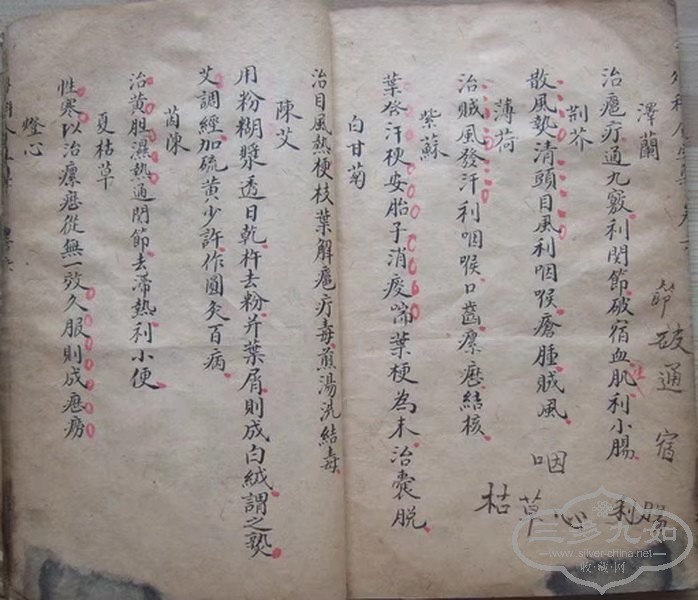 澤蘭
治癰疔通九竅利関節破宿血肌利小腸
荆芥
散風熱清頭目風利咽喉瘡腫賊風
薄荷
治賊風發汗利咽喉口齒瘰癧結核
紫蘇
葉發汗梗安胎子消痰喘葉梗為末治囊脱
白甘菊
治目風熱梗枝葉解癰疔毒煎湯洗結毒
陳艾
用粉糊漿透日乾杵去粉并葉屑則成白絨謂之熟
艾調經加硫黄少許作圓灸百病
茵陳
治黄胆濕熱通関節去滯熱利小便
夏枯草
性寒以治瘰癧從無一效久服則成癧癆
燈心
節破通宿
咽
枯草心利腸
三多九如
www.silver-china.net
收·藏·网